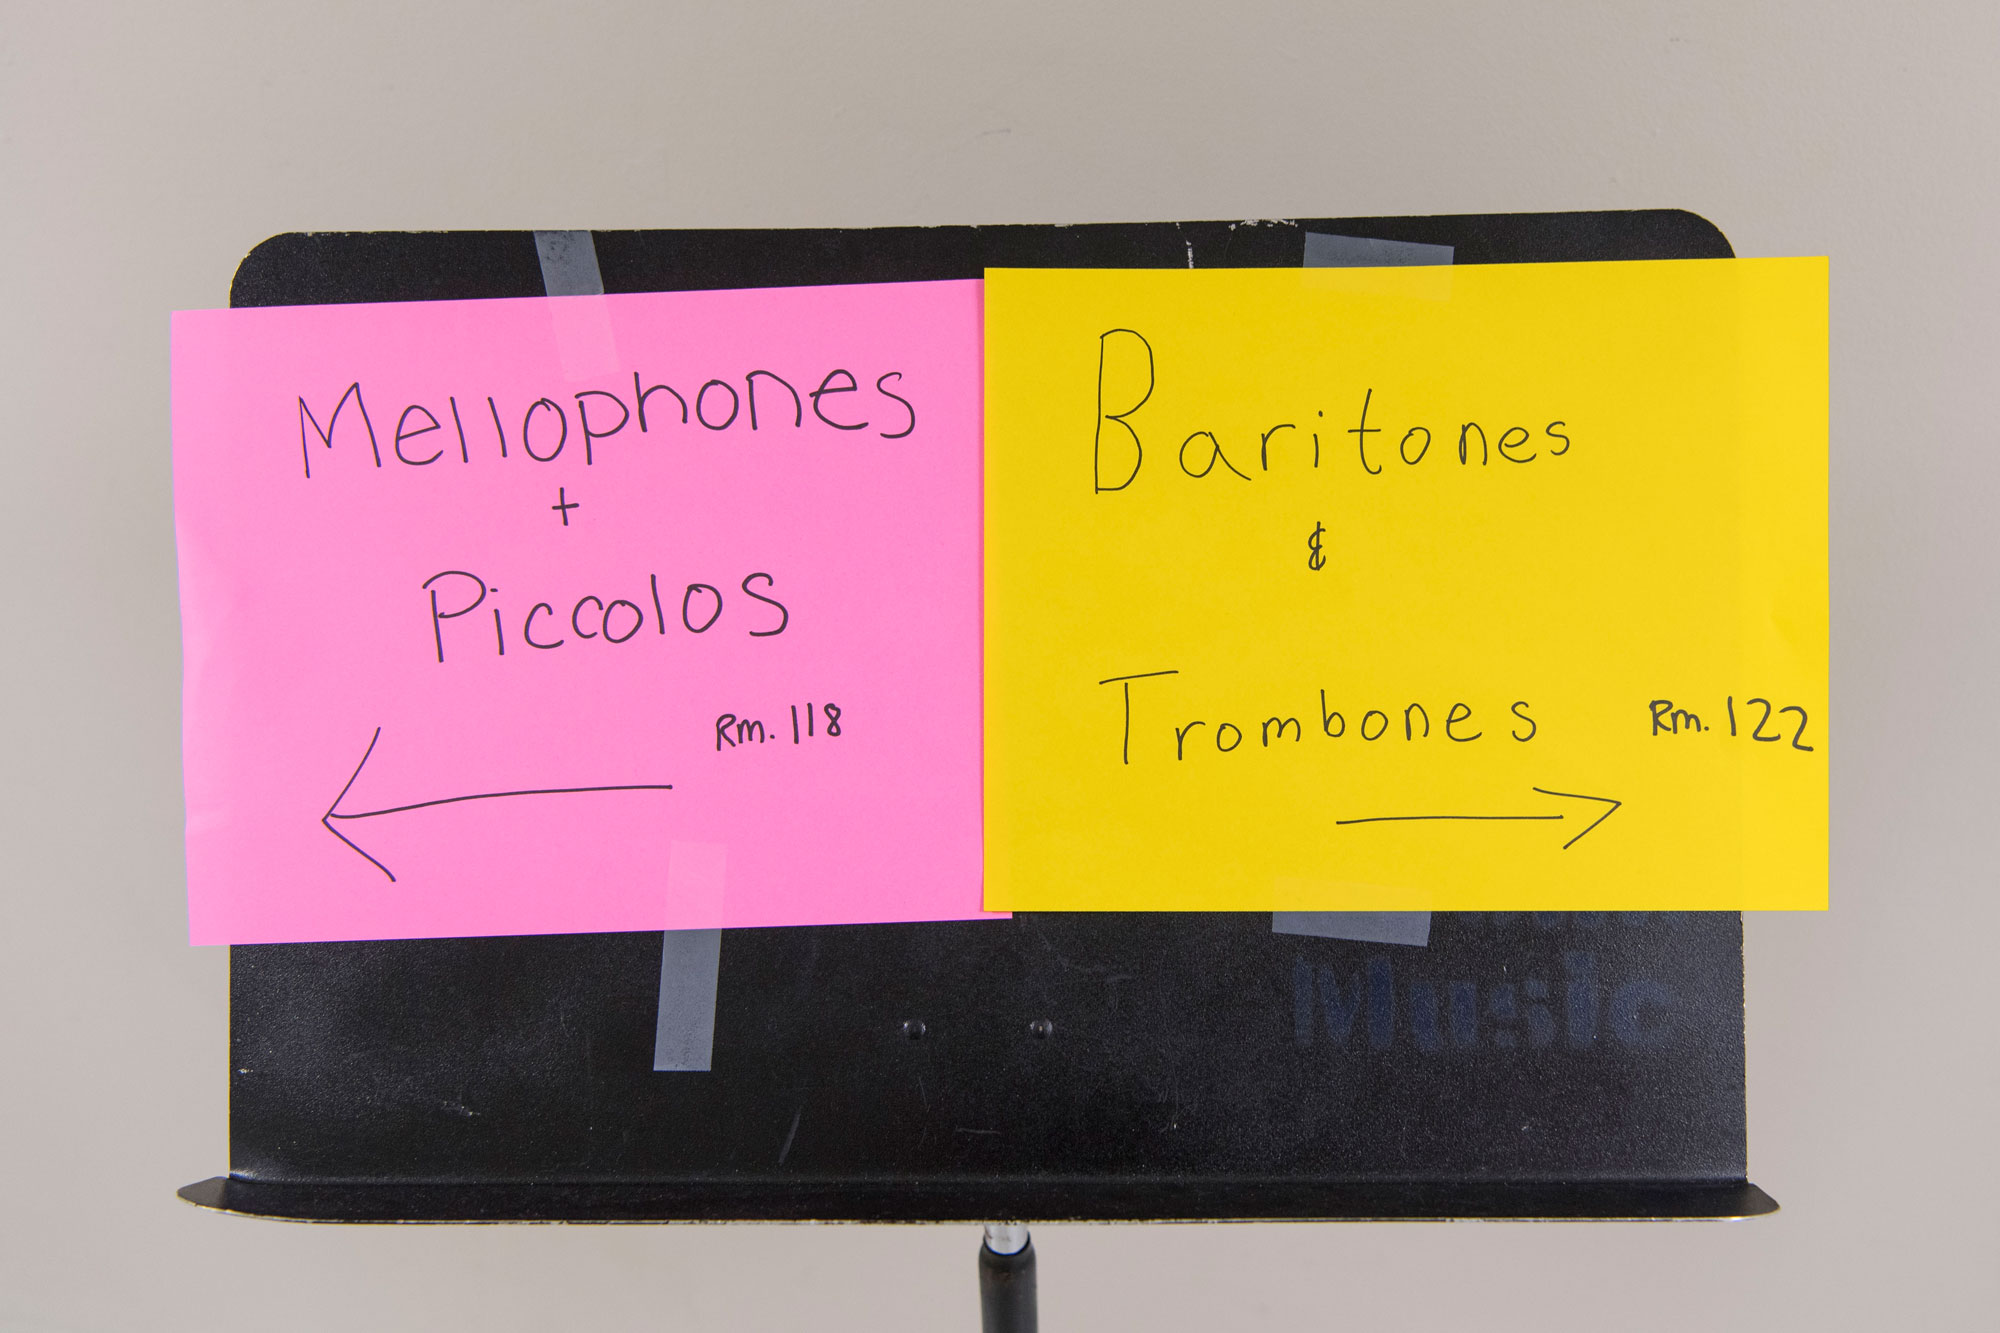 Mellophones
+
Piccolos
Rm. 118
Baritones
&
Trombones Rm. 122
Music